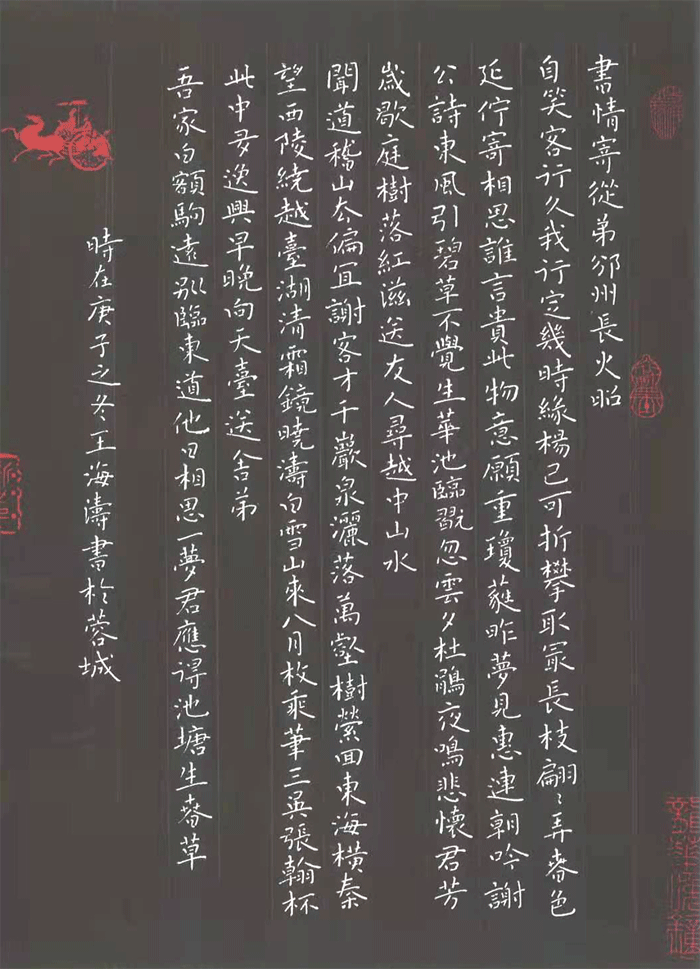 書情寄從弟邠州長火昭
自笑客行久我行定幾時緑楊已可折攀取冣長枝翩〻弄春色
延佇寄相思誰言貴此物意願重瓊蕤昨夢見惠連朝吟謝
公詩東風引碧草不覺生華池臨翫忽雲夕杜鵑夜鳴悲懷君芳
歲歇庭樹落紅滋送友人尋越中山水
聞道稽山去偏冝謝客才千巖泉灑落萬壑樹縈回東海橫秦
望西陵繞越臺湖清霜鏡曉濤白雪山來八月枚乘筆三吳張翰杯
此中多逸興早晚向天臺送舍弟
吾家白額駒遠別臨東道他日相思一夢君應得池塘生春草
時在庚子之冬王海濤書於蓉城